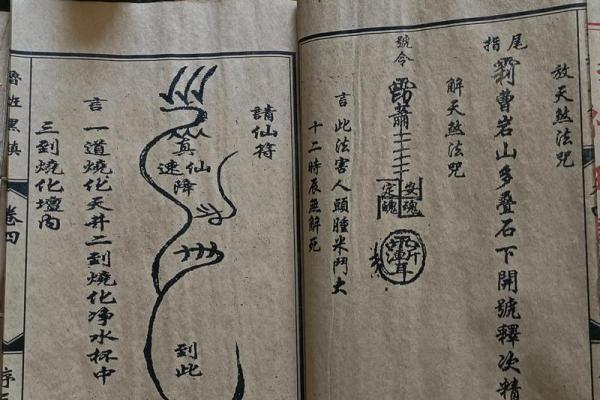 放天煞法咒
尾指
曹岩山多叠石下開號釋次精
解天煞法咒
號令
安魂
定魄
言此法害人頭腫米鬥大
十二時辰無解死
請仙符
真仙
速降
到此
言一道燒化天井二到燒化净水杯中
三到燒化壇内
卷四